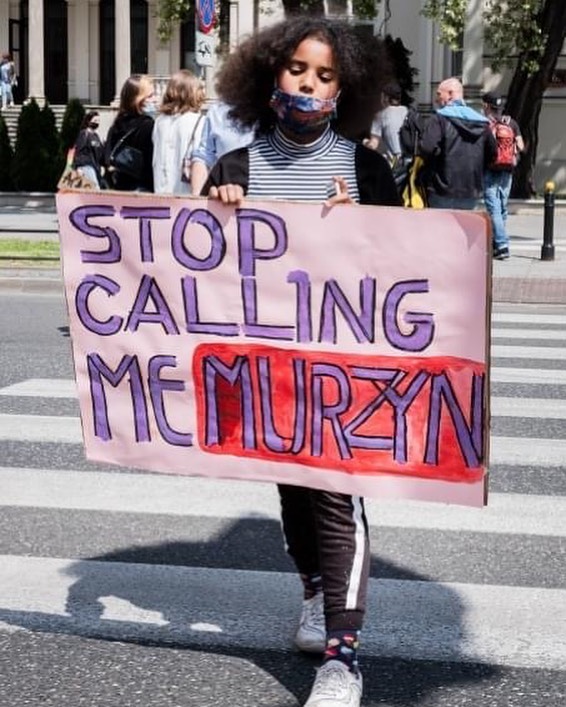 STOP
CALLING
ME MURZYN